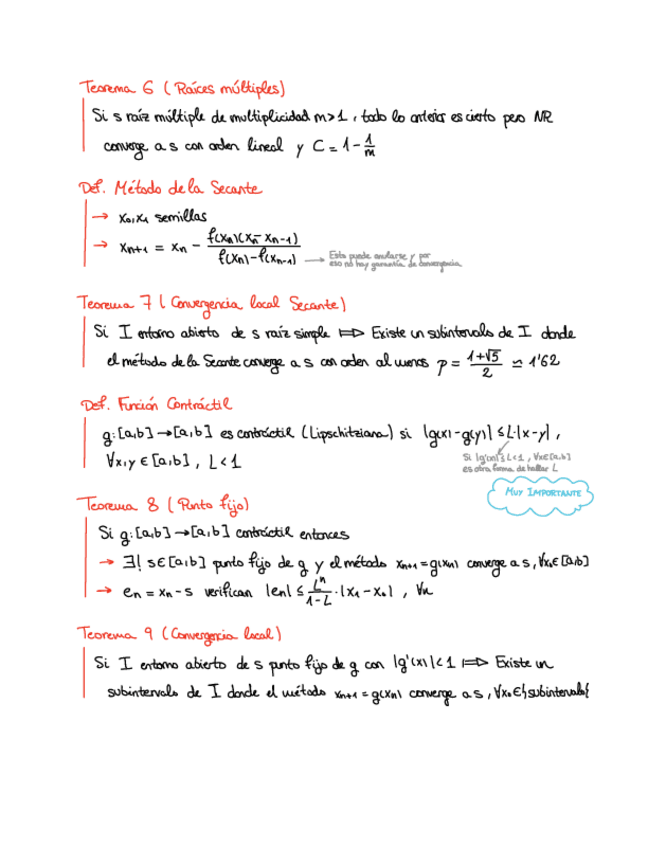 Teorema 6 (Raíces múltiples)
Si s raíz múltiple de multiplicidad m>1, todo lo anterior es cierto pero NR
converge a s con orden lineal y C = 1 - 1/m
Def. Método de la Secante
→ x₀, x₁ semillas
→ xₙ₊₁ = xₙ - f(xₙ)(xₙ - xₙ₋₁) / f(xₙ) - f(xₙ₋₁) → Esto puede anularse y por
eso no hay garantía de convergencia
Teorema 7 (Convergencia local Secante)
Si I entorno abierto de s raíz simple ⟹ Existe un subintervalo de I donde
el método de la Secante converge a s con orden al menos p = 1+√5 / 2 ≃ 1'62
Def. Función Contráctil
g: [a,b] → [a,b] es contráctil (Lipschitziana) si |g(x) - g(y)| ≤ L·|x-y|,
∀x,y ∈ [a,b], L<1
Si |g'(x)| ≤ L<1, ∀x∈[a,b]
es otra forma de hallar L
MUY IMPORTANTE
Teorema 8 (Punto fijo)
Si g: [a,b] → [a,b] contráctil entonces
→ ∃! s∈[a,b] punto fijo de g y el método xₙ₊₁ = g(xₙ) converge a s, ∀x₀∈[a,b]
→ eₙ = xₙ - s verifican |eₙ| ≤ Lⁿ / 1-L · |x₁ - x₀|, ∀n
Teorema 9 (Convergencia local)
Si I entorno abierto de s punto fijo de g con |g'(x)| < 1 ⟹ Existe un
subintervalo de I donde el método xₙ₊₁ = g(xₙ) converge a s, ∀x₀∈{subintervalo}